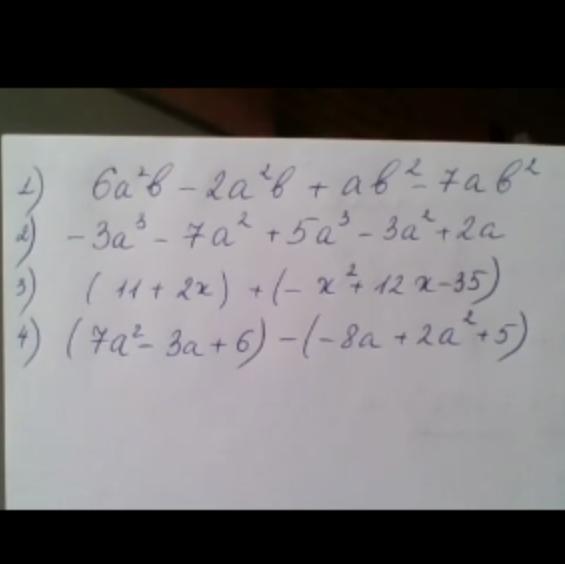 1) 6a²b - 2a²b + ab² - 7ab²
2) -3a³ - 7a² + 5a³ - 3a² + 2a
3) (11 + 2x) + (-x² + 12x - 35)
4) (7a² - 3a + 6) - (-8a + 2a² + 5)